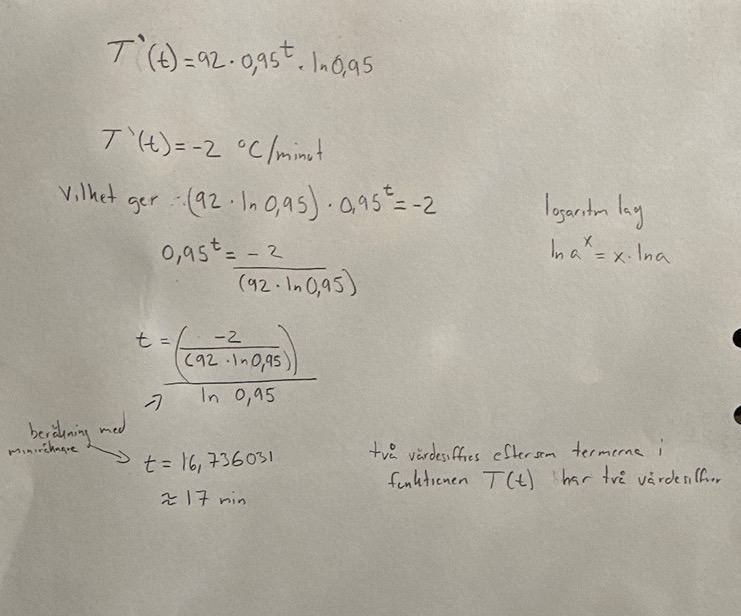 T`(t) = 92 · 0,95^t · ln 0,95
T`(t) = -2 °C/minut
Vilket ger : (92 · ln 0,95) · 0,95^t = -2
logaritm lag
0,95^t = -2 / (92 · ln 0,95)
ln a^x = x · ln a
t = ( -2 / (92 · ln 0,95) ) / ln 0,95
beräkning med
miniräknare
t = 16,736031
≈ 17 min
två värdesiffres eftersom termerna i
funktionen T(t) har två värdesiffror